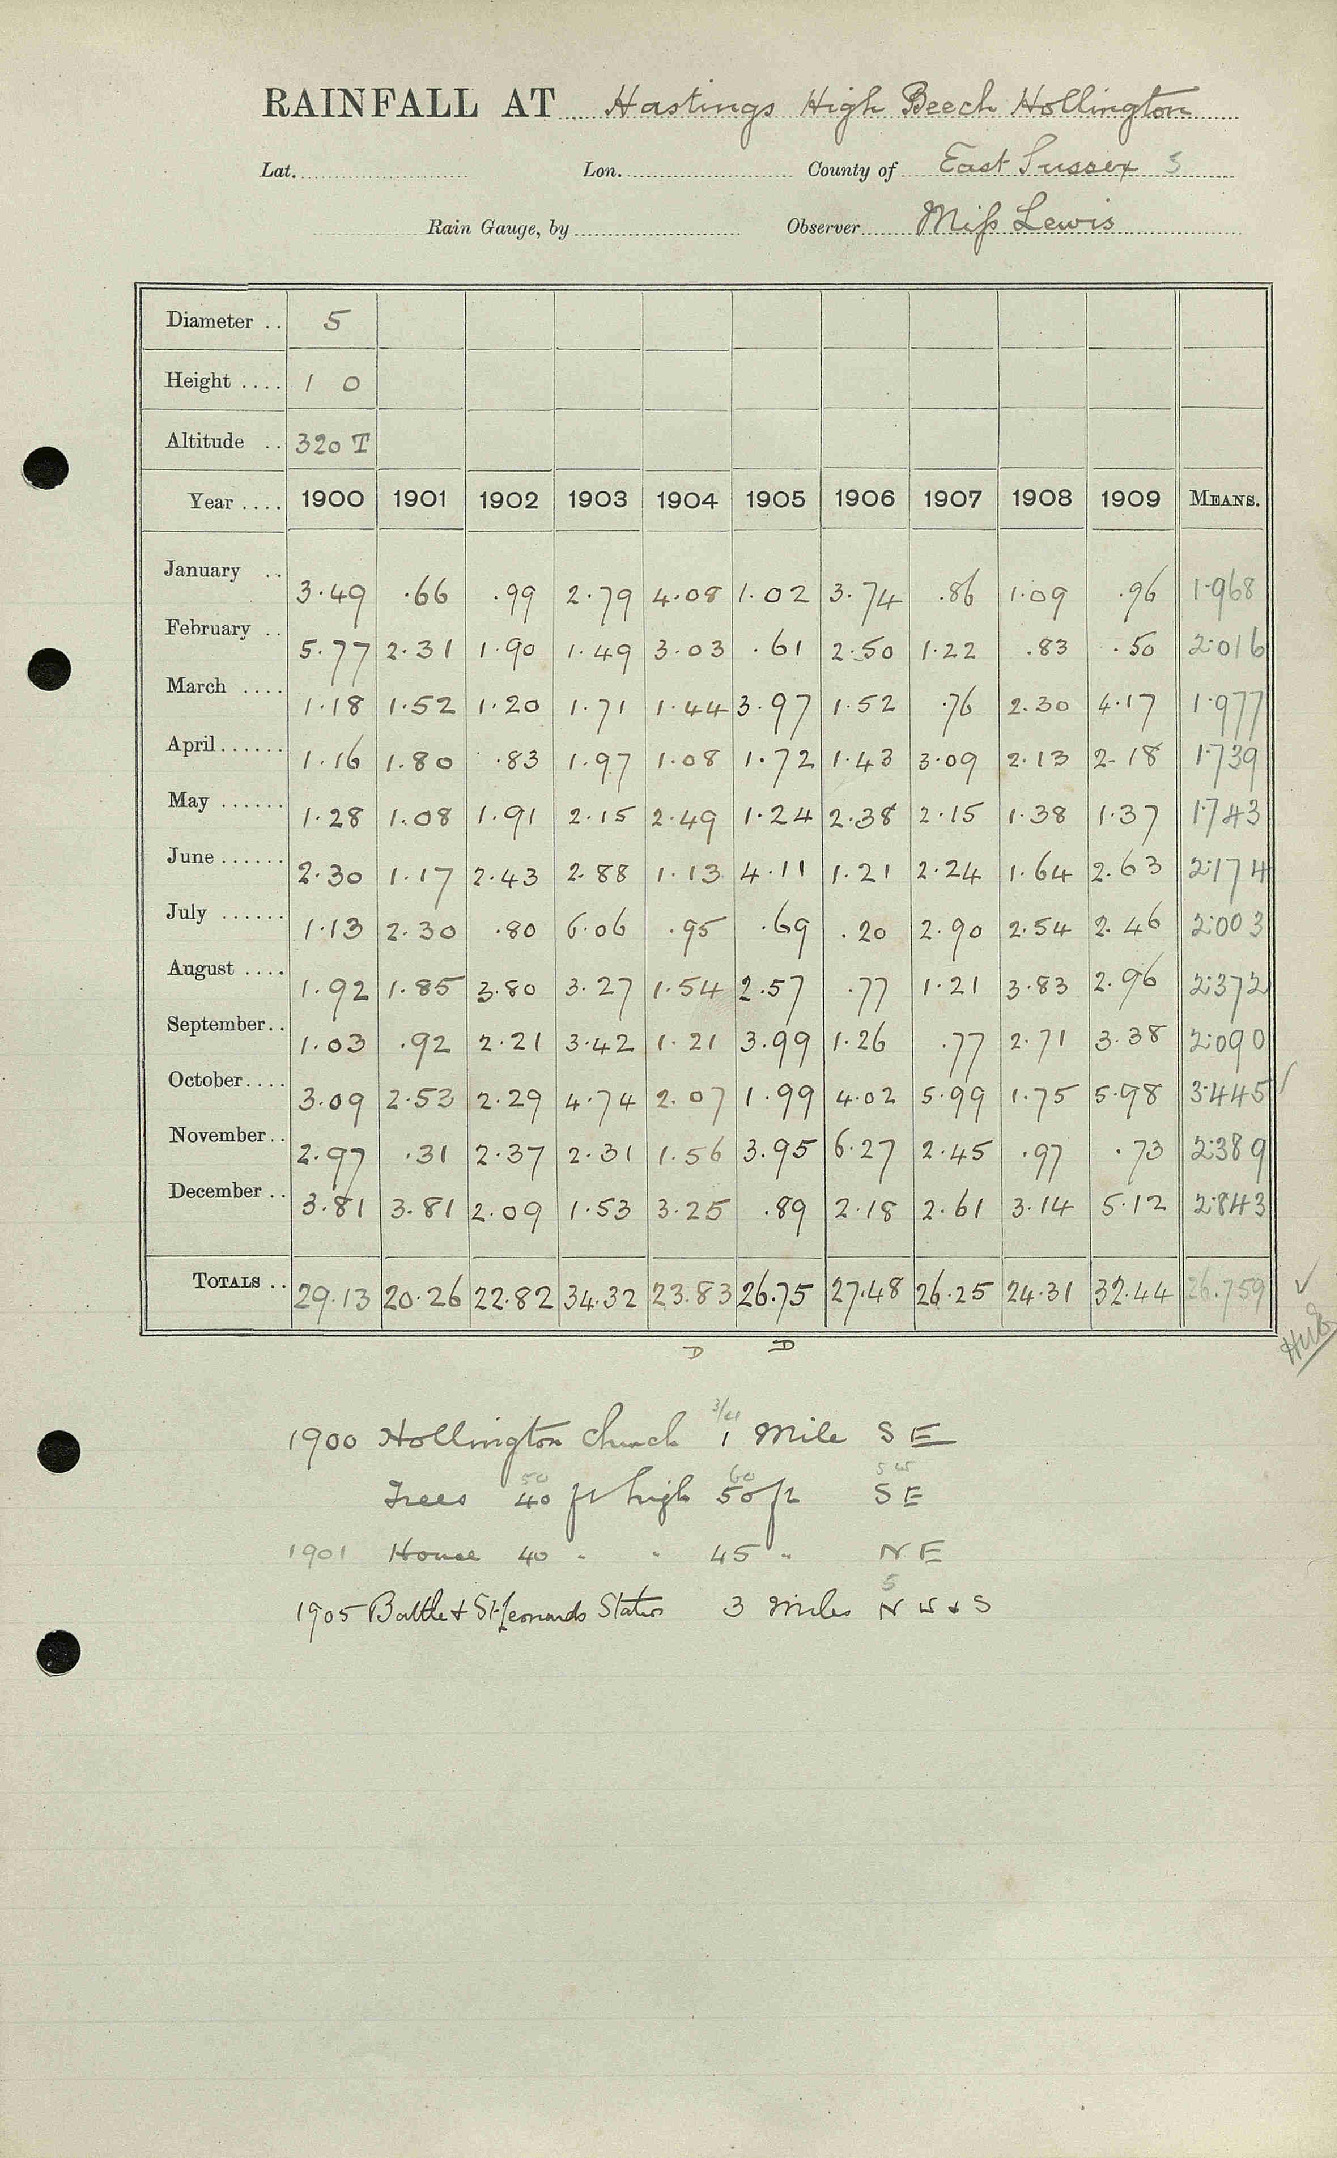 RAINFALL AT Hastings High Beech Hollington
Lat. Lon. County of East Sussex 5
Rain Gauge, by Observer Miss Lewis
Diameter .. 5
Height .... 1 0
Altitude .. 320 T
Year .... 1900 1901 1902 1903 1904 1905 1906 1907 1908 1909 MEANS.
January .. 3.49 .66 .99 2.79 4.08 1.02 3.74 .86 1.09 .96 1.968
February .. 5.77 2.31 1.90 1.49 3.03 .61 2.50 1.22 .83 .50 2.016
March .... 1.18 1.52 1.20 1.71 1.44 3.97 1.52 .76 2.30 4.17 1.977
April ...... 1.16 1.80 .83 1.97 1.08 1.72 1.43 3.09 2.13 2.18 1.739
May ...... 1.28 1.08 1.91 2.15 2.49 1.24 2.38 2.15 1.38 1.37 1.743
June ...... 2.30 1.17 2.43 2.88 1.13 4.11 1.21 2.24 1.64 2.63 2.174
July ...... 1.13 2.30 .80 6.06 .95 .69 .20 2.90 2.54 2.46 2.003
August .... 1.92 1.85 3.80 3.27 1.54 2.57 .77 1.21 3.83 2.96 2.372
September .. 1.03 .92 2.21 3.42 1.21 3.99 1.26 .77 2.71 3.38 2.090
October .... 3.09 2.53 2.29 4.74 2.07 1.99 4.02 5.99 1.75 5.98 3.445 /
November .. 2.97 .31 2.37 2.31 1.56 3.95 6.27 2.45 .97 .73 2.389
December .. 3.81 3.81 2.09 1.53 3.25 .89 2.18 2.61 3.14 5.12 2.843
TOTALS .. 29.13 20.26 22.82 34.32 23.83 26.75 27.48 26.25 24.31 32.44 26.759 ✓
D D
3/4
1900 Hollington Church 1 Mile S E
50 60 S W
Trees 40 ft high 50 ft S E
1901 House 40 " " 45 " N E
5
1905 Battle & St Leonards Station 3 miles N W & S